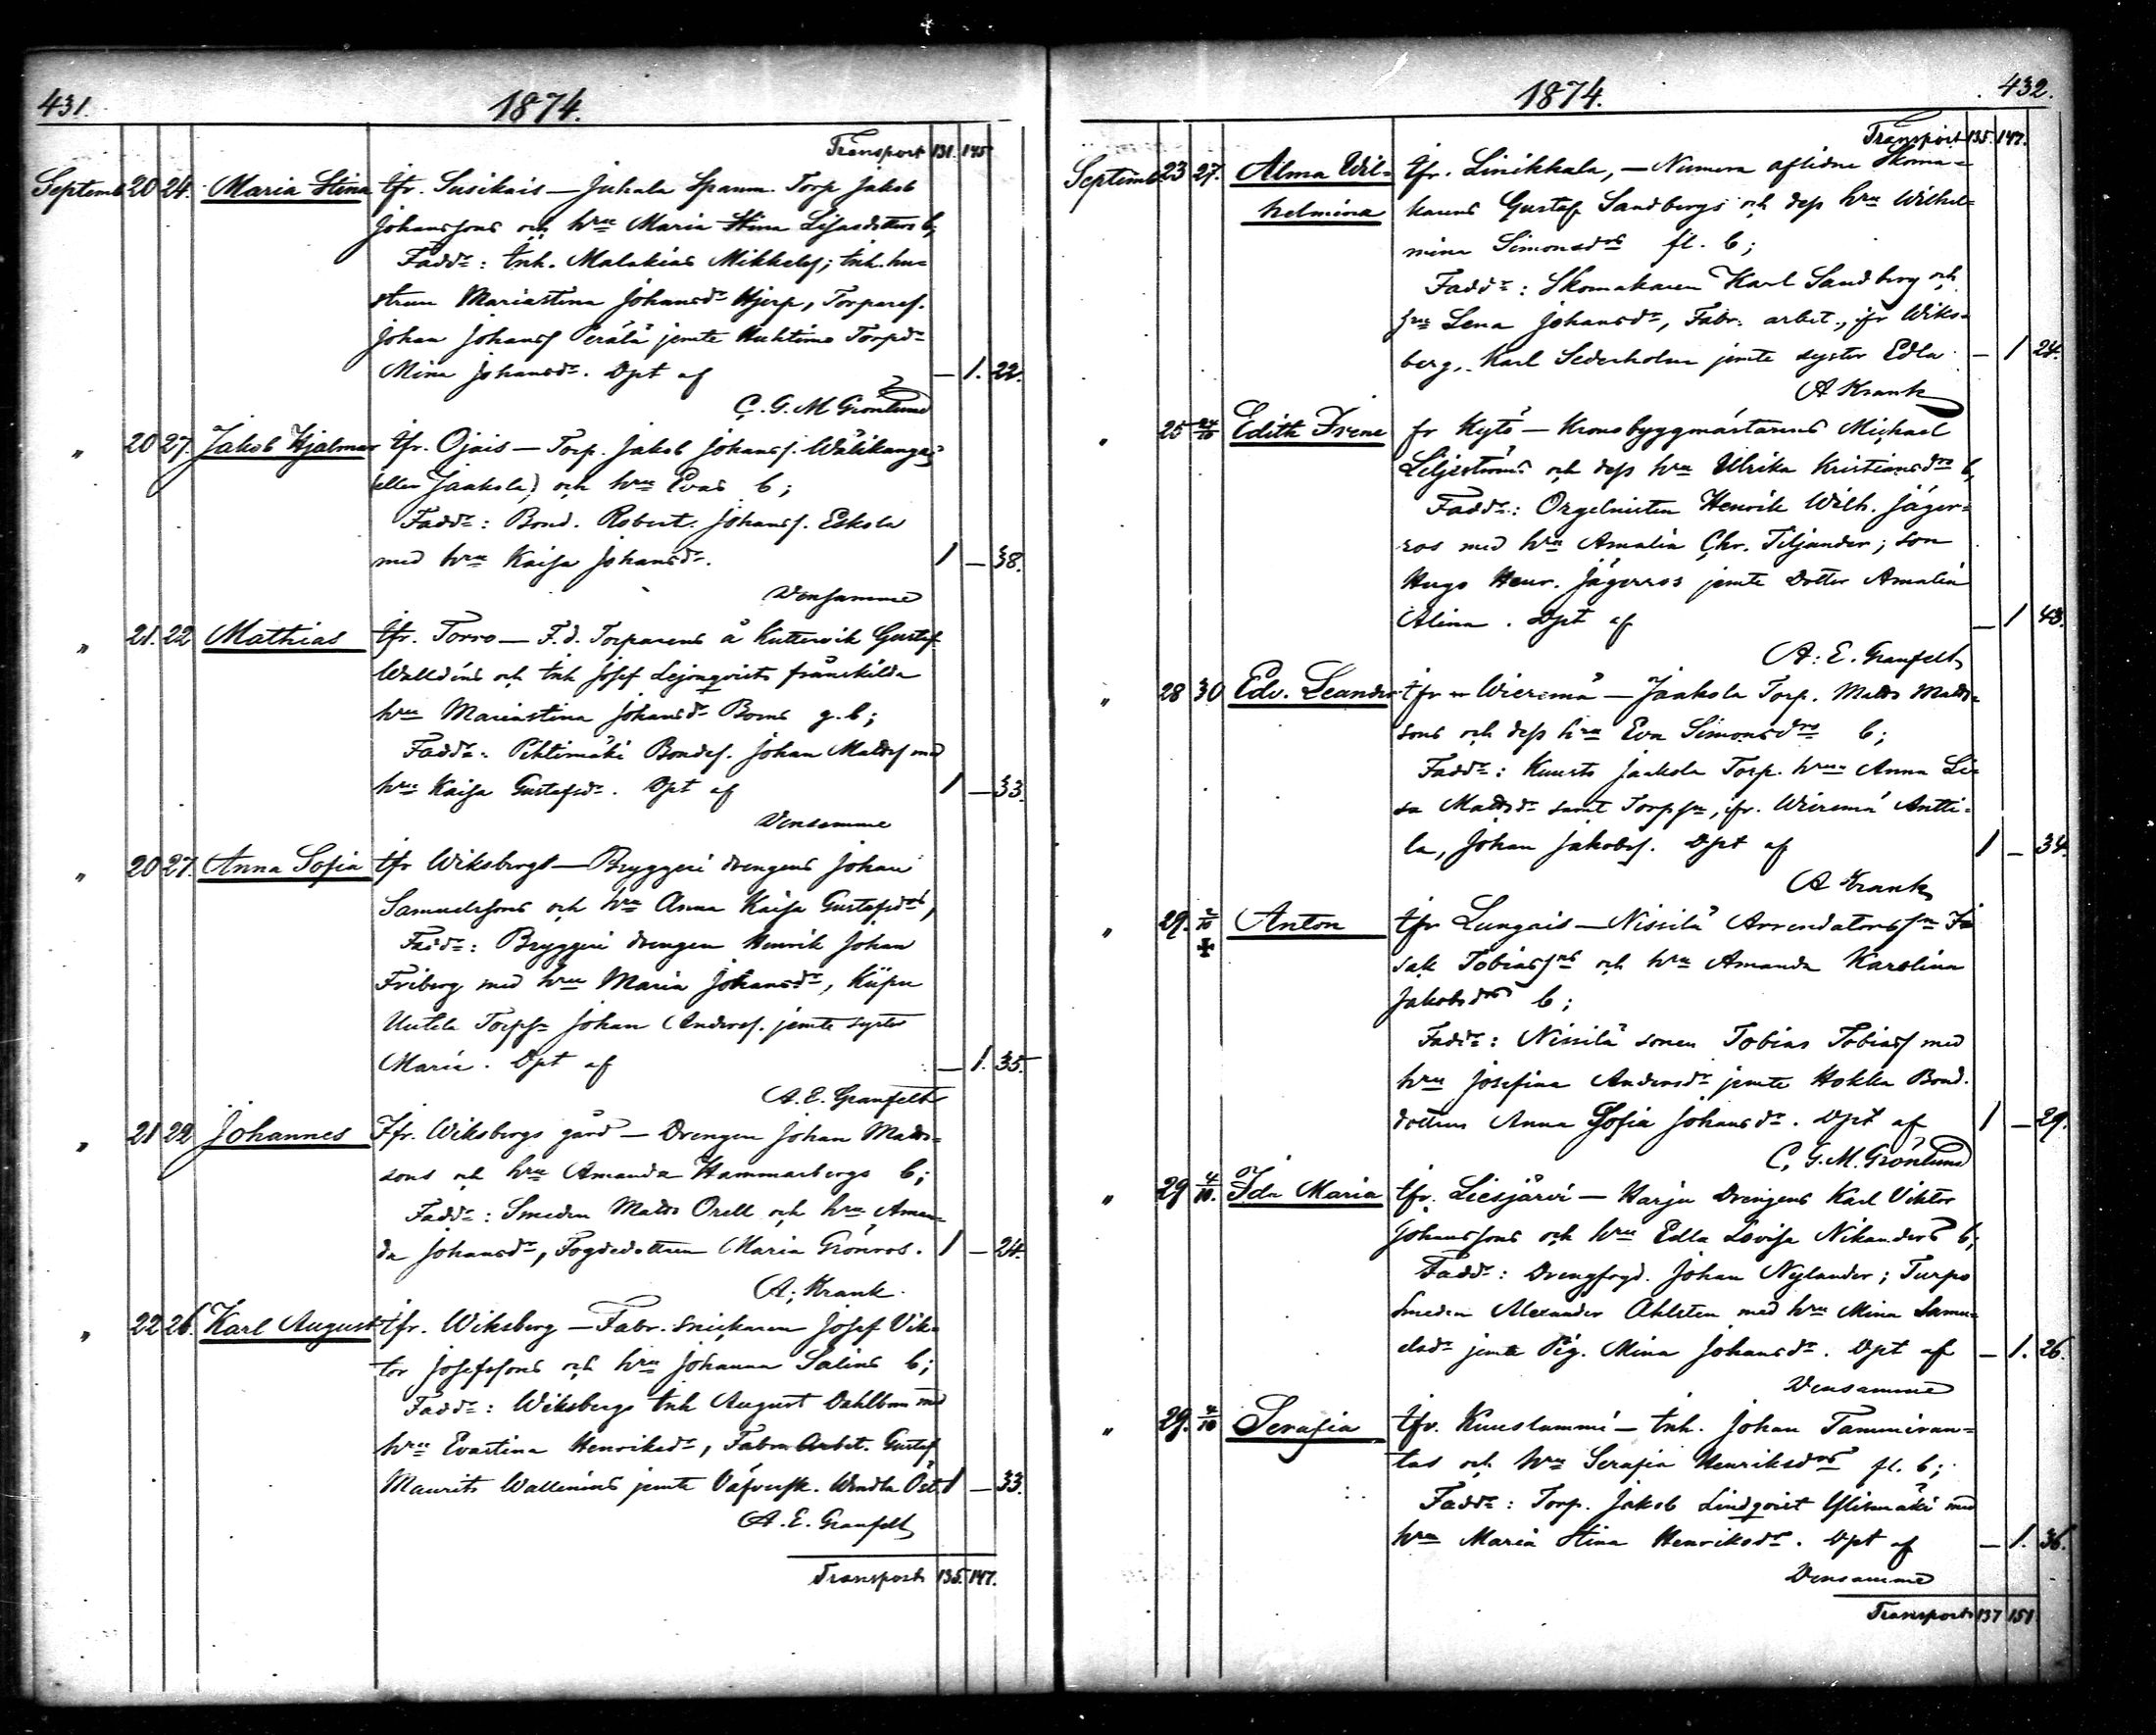 431.
1874.
Transport 131. 145
Septemb 20 24. Maria Stina tfr. Susikais — Juhala Spanm. Torp Jakob
Johanssons och hru Maria Stina Lisasdotters b;
Fadd: Inh. Malakias Mikkelsf; Inh. hu=
strun Mariastina Johansdr Hjerp, Torparef.
Johan Johansf Perälä jemte Huhtimo Torpdr
Mina Johansdr. Dpt af — 1. 22.
C. G. M Grönlund
" 20 27. Jakob Hjalmar tfr. Ojais — Torp. Jakob Johansf. Wälikangas
(eller Jaakola) och hru Evas b;
Fadd: Bond. Robert Johansf. Eskola
med hru Kaisa Johansdr. 1 — 38.
Densamme
" 21. 22 Mathias tfr. Torro — F. d. Torparens å Kuttervik Gustaf
Walldéns och Inh Josef Lejonqvists frånskilda
hru Mariastina Johansdr Boms g. b;
Fadd: Pihtimäki Bondes. Johan Matsf med
hru Kaisa Gustafsdr. Dpt af 1 — 33.
Densamme
" 20 27. Anna Sofia tfr Wiksbergs — Bryggeri drengens Johan
Samuelssons och hru Anna Kaisa Gustafsdrs,
Fadd: Bryggeri drengen Henrik Johan
Friberg med hru Maria Johansdr, Kiipu
Uutela Torpsn Johan Andersf. jemte syster
Maria. Dpt af — 1. 35.
A. E. Granfelt
" 21 22 Johannes Ifr. Wiksbergs gård — Drengen Johan Mats=
sons och hru Amanda Hammarbergs b;
Fadd: Smeden Matts Orell och hru Aman=
da Johansdr, Fogdedottren Maria Grönros. 1 — 24.
A. Krank.
" 22 26. Karl August tfr. Wiksberg — Fabr. snickaren Josef Vik=
tor Josefssons och hru Johanna Salins b;
Fadd: Wiksbergs Inh August Dahlbom med
hru Evastina Henriksdr, Fabrs Arbet. Gustaf
Maurits Wallenius jemte Väfversk. Wendla Öst. 1 — 33.
A. E. Granfelt
Transport 135. 147.
432.
1874.
Transport 135. 147.
Septemb 23 27. Alma Wil= tfr. Linikkala, — Numera aflidne Skoma=
helmina karens Gustaf Sandbergs och dess hru Wilhel=
mina Simonsdrs fl. b;
Fadd: Skomakaren Karl Sandberg och
hru Lena Johansdr, Fabr. arbet., fr Wiks=
berg, Karl Sederholm jemte syster Edla — 1 24.
A Krank
" 25 24/10 Edith Irene fr Kytö — Kronobyggmästarens Michael
Liljeströms och dess hru Ulrika Kristiansdrs b,
Fadd: Orgelnisten Henrik Wilh. Jäger=
ros med hru Amalia Chr. Tiljander; son
Hugo Henr. Jägerros jemte dotter Amalia
Alina. Dpt af — 1 43.
A. E. Granfelt
" 28 30 Edv. Leander tfr Wieremä — Jaakola Torp. Matts Matts=
sons och dess hru Eva Simonsdrs b;
Fadd: Kuusto Jaakola Torp. hru Anna Li=
sa Mattsdr samt Torpsn, fr. Wieremä Antti=
la, Johan Jakobsf. Dpt af 1 — 34.
A Krank
" 29. 2/10 ✝ Anton tfr Lungais — Nissilä Arrendatorssn I=
sak Tobiassns och hru Amanda Karolina
Jakobsdrs b;
Fadd: Nissilä sonen Tobias Tobiasf med
hru Josefina Andersdr jemte Hokka Bond.
dottren Anna Sofia Johansdr. Dpt af 1 — 29.
C. G. M. Grönlund
" 29 4/10. Ida Maria tfr. Liesjärvi — Harju Drengens Karl Viktor
Johanssons och hru Edla Lovisa Nikanders b;
Fadd: Drengfogd. Johan Nylander; Turpo
Smeden Alexander Ahlsten med hru Mina Samu=
elsdr jemte Pig. Mina Johansdr. Dpt af — 1. 26.
Densamme
" 29. 4/10 Serafia tfr. Kuuslammi — Inh. Johan Tammiran=
tas och hru Serafia Henriksdrs fl. b;
Fadd: Torp. Jakob Lindqvist Ylismäki med
hru Maria Stina Henriksdr. Dpt af — 1. 36.
Densamme
Transport 137 151